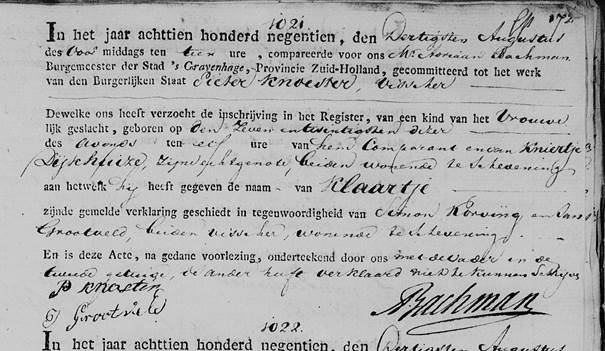 172
1021.
In het jaar achttien honderd negentien, den Dertigsten Augustus
des Voor middags ten tien ure, compareerde voor ons Mr Adriaan Bachman
Burgemeester der Stad 's Gravenhage, Provincie Zuid-Holland, gecommitteerd tot het werk
van den Burgerlijken Staat Pieter Knoester, visscher
Dewelke ons heeft verzocht de inschrijving in het Register, van een kind van het Vrouwe
lijk geslacht, geboren op den Zeven entwintigsten dezer
des avonds ten elf ure van hem Comparant en van Kniertje
zijne echtgenote, beiden wonende te Schevening
aan hetwelk hij heeft gegeven de naam van Klaartje
zijnde gemelde verklaring geschiedt in tegenwoordigheid van Simon Korving en Jan
Grootveld, beiden visscher, wonende te Schevening.
En is deze Acte, na gedane voorlezing, onderteekend door ons met de vader en de
tweede getuige, de ander heeft verklaard niet te kunnen Schrijven
P Knoester
Bachman
G Grootveld
1022.
In het jaar achttien honderd negentien, den Dertigsten Augustus